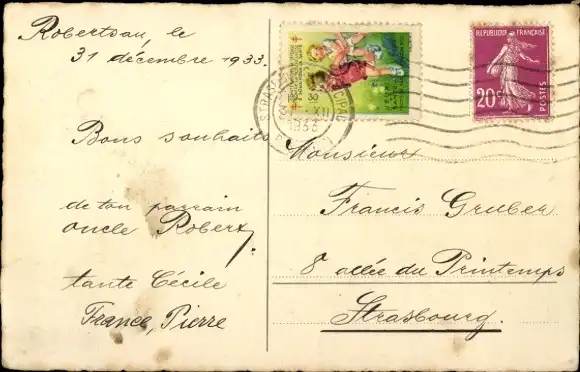 Robertsau, le
31 décembre 1933.
Bons souhaits
de ton parrain
oncle Robert,
tante Cécile
France, Pierre
REPUBLIQUE FRANÇAISE
20c
POSTES
STRASBOURG
XII
1933
Monsieur
Francis Gruber
8 allée du Printemps
Strasbourg.